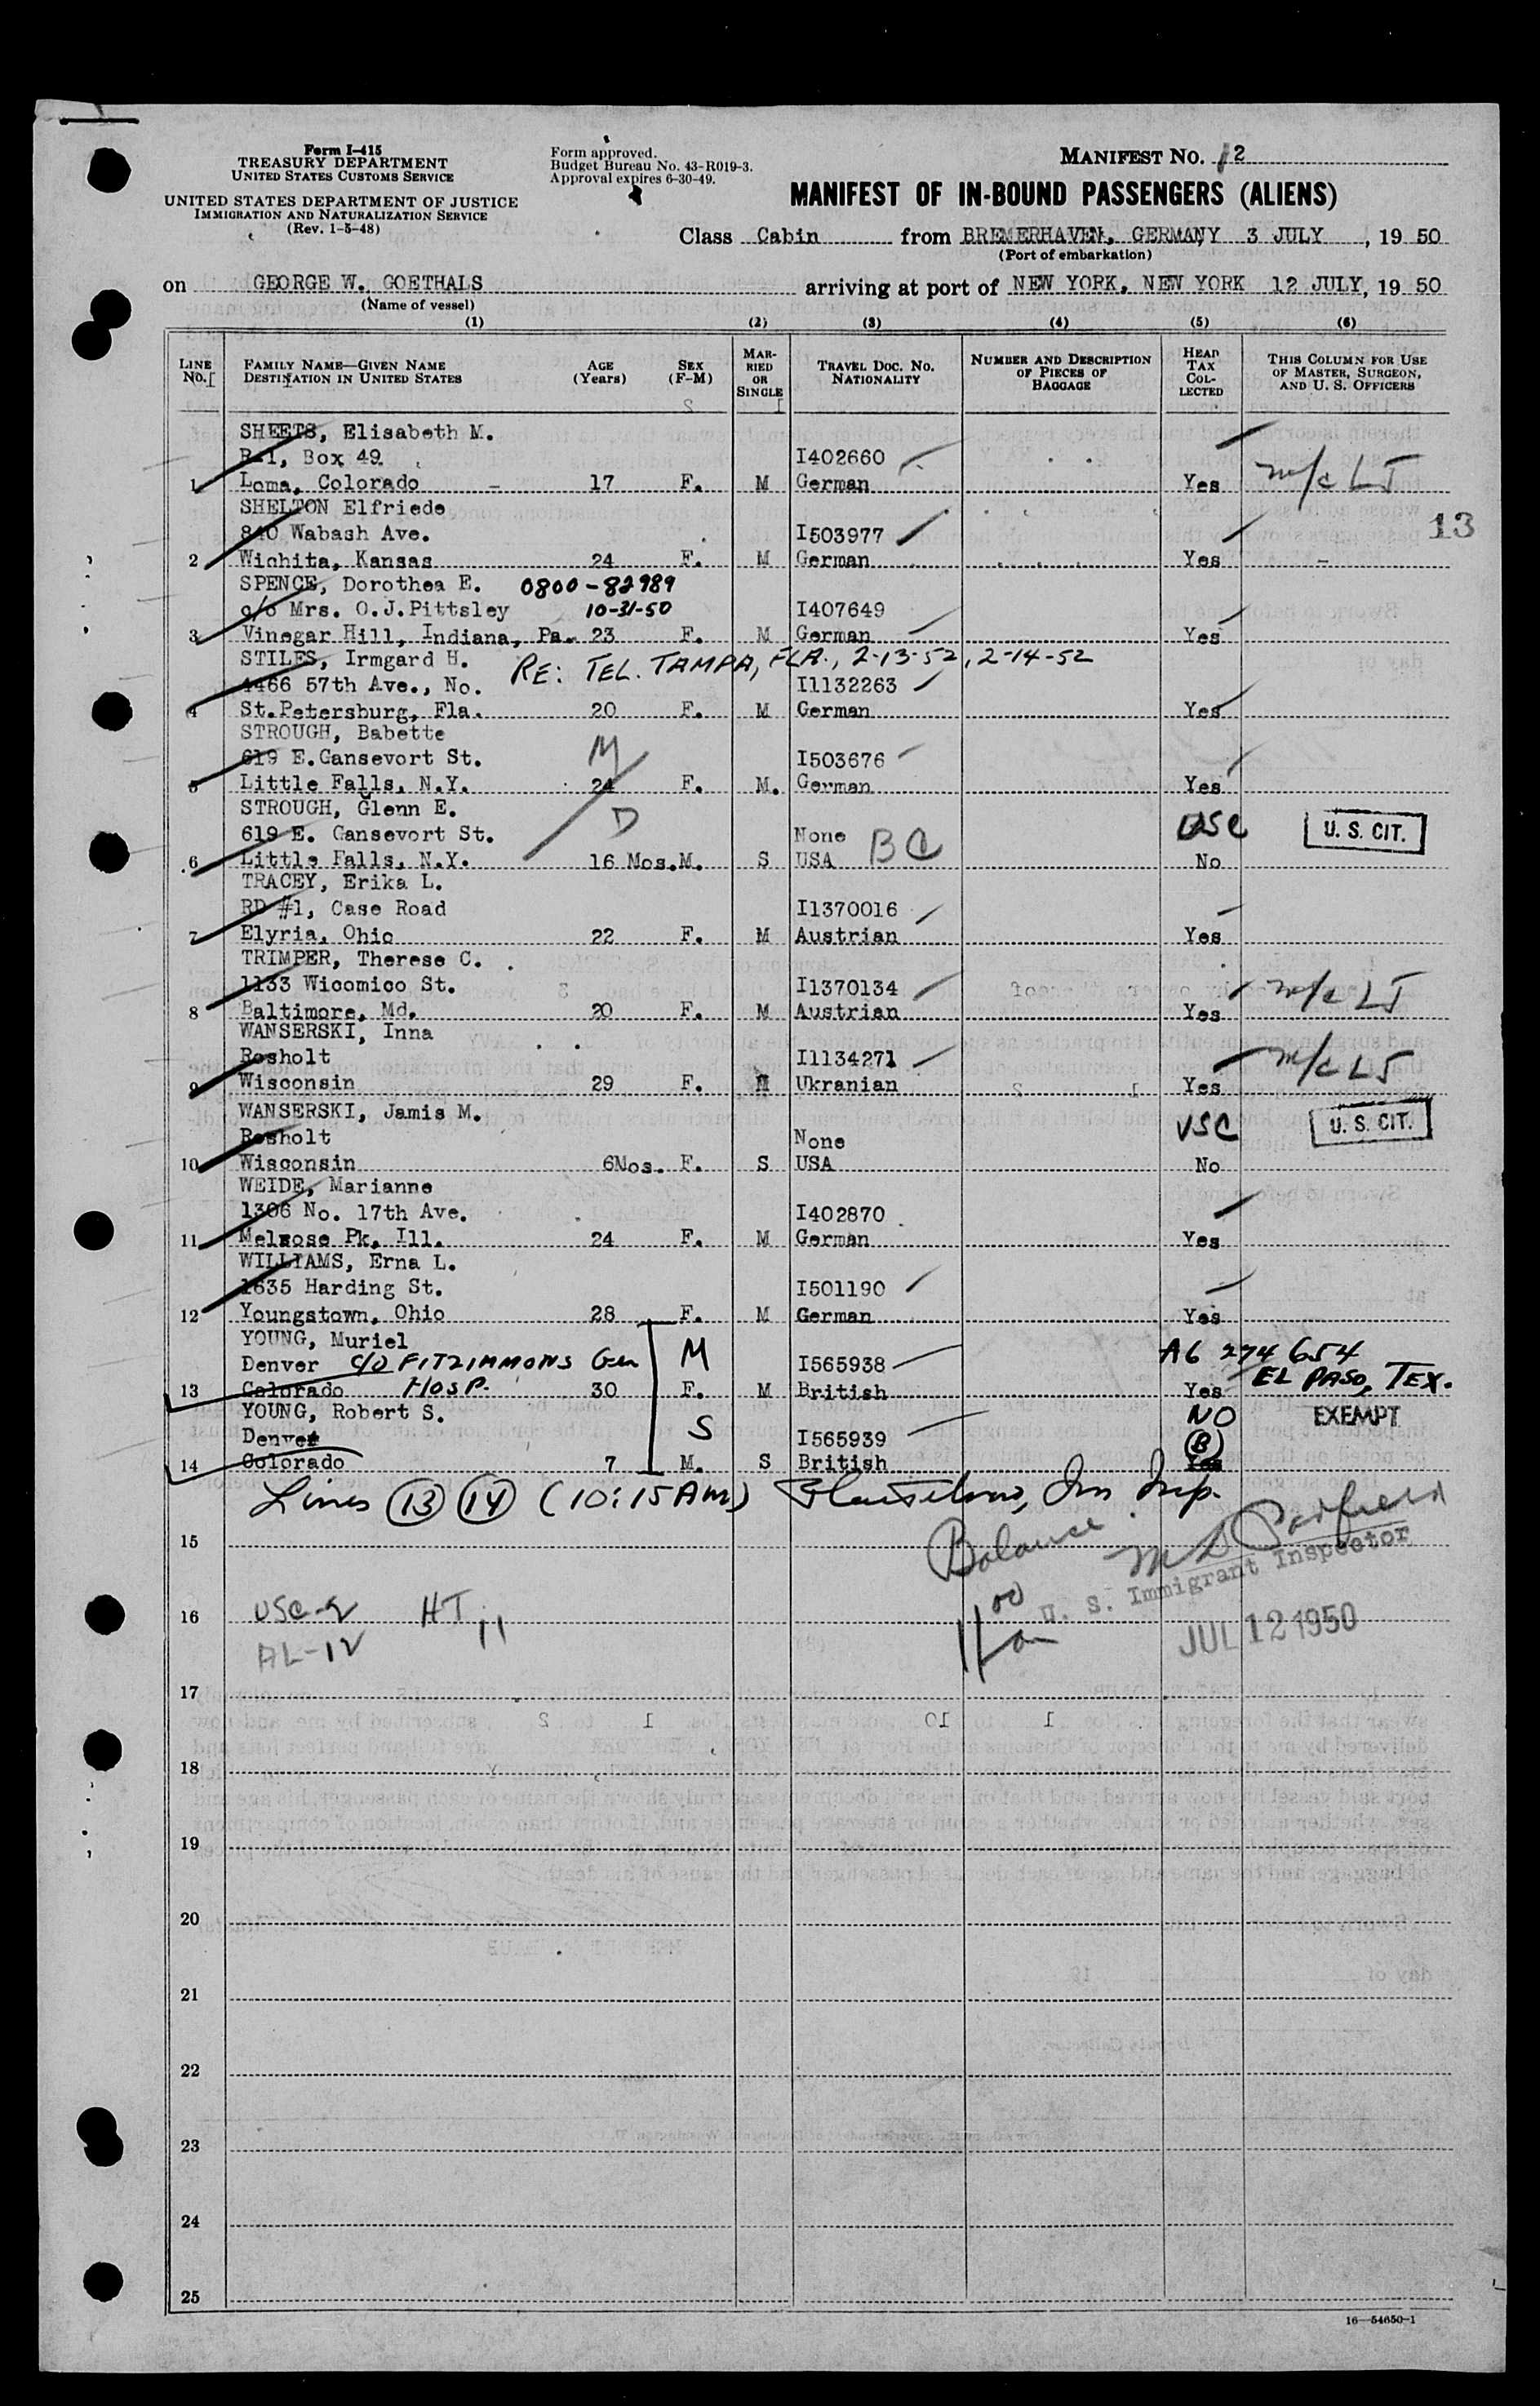 Form I-415
TREASURY DEPARTMENT
UNITED STATES CUSTOMS SERVICE
UNITED STATES DEPARTMENT OF JUSTICE
IMMIGRATION AND NATURALIZATION SERVICE
(Rev. 1-5-48)
Form approved.
Budget Bureau No. 43-R019-3.
Approval expires 6-30-49.
MANIFEST NO. 12
MANIFEST OF IN-BOUND PASSENGERS (ALIENS)
Class Cabin from BREMERHAVEN, GERMANY 3 JULY, 19 50
(Port of embarkation)
on GEORGE W. GOETHALS arriving at port of NEW YORK, NEW YORK 12 JULY, 19 50
(Name of vessel)
(1) (2) (3) (4) (5) (6)
LINE NO. FAMILY NAME—GIVEN NAME DESTINATION IN UNITED STATES AGE (Years) SEX (F-M) MARRIED OR SINGLE TRAVEL DOC. NO. NATIONALITY NUMBER AND DESCRIPTION OF PIECES OF BAGGAGE HEAD TAX COLLECTED THIS COLUMN FOR USE OF MASTER, SURGEON, AND U. S. OFFICERS
SHEETS, Elisabeth M.
R-1, Box 49 I402660
1 Loma, Colorado - 17 F. M German Yes m/c LJ
SHELTON Elfriede
13
840 Wabash Ave. I503977
2 Wichita, Kansas 24 F. M German Yes -
SPENCE, Dorothea E. 0800-82989
c/o Mrs. O.J.Pittsley 10-31-50 I407649
3 Vinegar Hill, Indiana, Pa. 23 F. M German Yes
STILES, Irmgard H. RE: TEL. TAMPA, FLA., 2-13-52, 2-14-52
4466 57th Ave., No. I1132263
4 St.Petersburg, Fla. 20 F. M German Yes
STROUGH, Babette M
619 E.Gansevort St. I503676
5 Little Falls, N.Y. 24 F. M. German Yes
STROUGH, Glenn E. D USC U. S. CIT.
619 E. Gansevort St. None BC
6 Little Falls, N.Y. 16 Mos. M. S USA No
TRACEY, Erika L.
RD #1, Case Road I1370016
7 Elyria, Ohio 22 F. M Austrian Yes
TRIMPER, Therese C.
1133 Wicomico St. I1370134 m/c LJ
8 Baltimore, Md. 20 F. M Austrian Yes
WANSERSKI, Inna
Rosholt I1134271 m/c LJ
9 Wisconsin 29 F. M Ukranian Yes
WANSERSKI, Jamis M. USC U. S. CIT.
Rosholt None
10 Wisconsin 6Mos. F. S USA No
WEIDE, Marianne
1306 No. 17th Ave. I402870
11 Melrose Pk, Ill. 24 F. M German Yes
WILLIAMS, Erna L.
1635 Harding St. I501190
12 Youngstown, Ohio 28 F. M German Yes
YOUNG, Muriel M A6 274 654
Denver c/o FITZIMMONS Gen I565938 EL PASO, TEX.
13 Colorado HOSP. 30 F. M British Yes
YOUNG, Robert S. S NO EXEMPT
Denver I565939 B
14 Colorado 7 M. S British Yes
Lines 13 14 (10:15 AM) Imm Insp.
15 Balance M D Padfield
U. S. Immigrant Inspector
16 USC-2 HT 11 JUL 12 1950
AL-12
17
18
19
20
21
22
23
24
25
16—54650-1